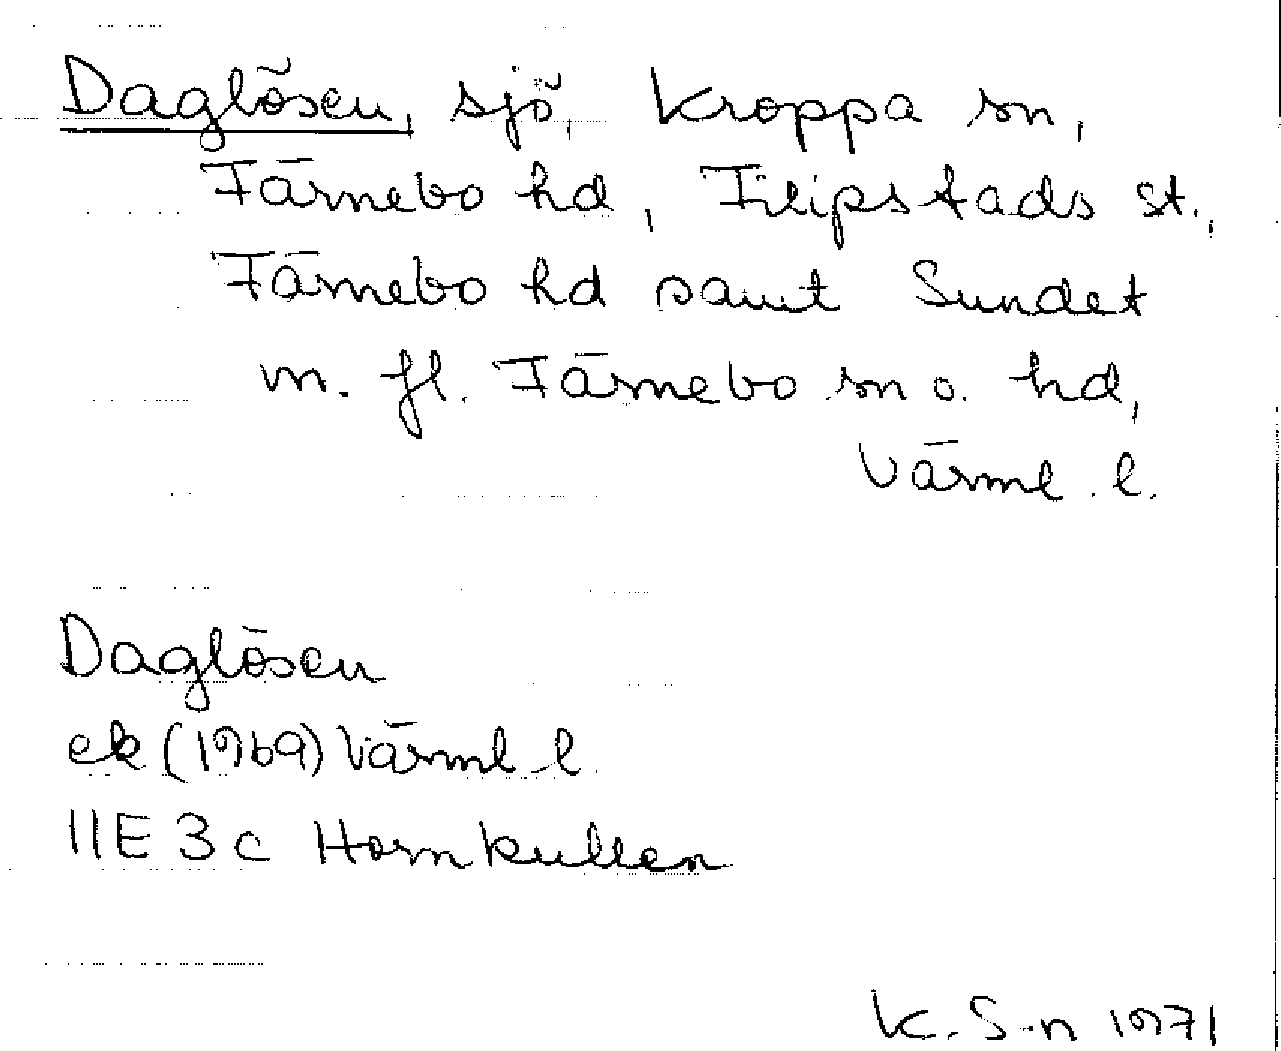 Daglösen, sjö, Kroppa sn,
Färnebo hd, Filipstads st.,
Färnebo hd samt Sundet
m. fl. Färnebo sn o. hd,
Värml. l.
Daglösen
ek (1969) Värml l
11E 3c Hornkullen
K. S-n 1971